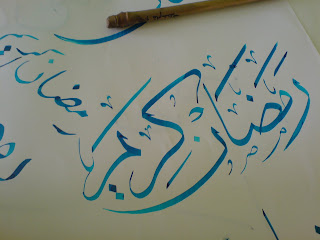 رمضان كريم
رمضان